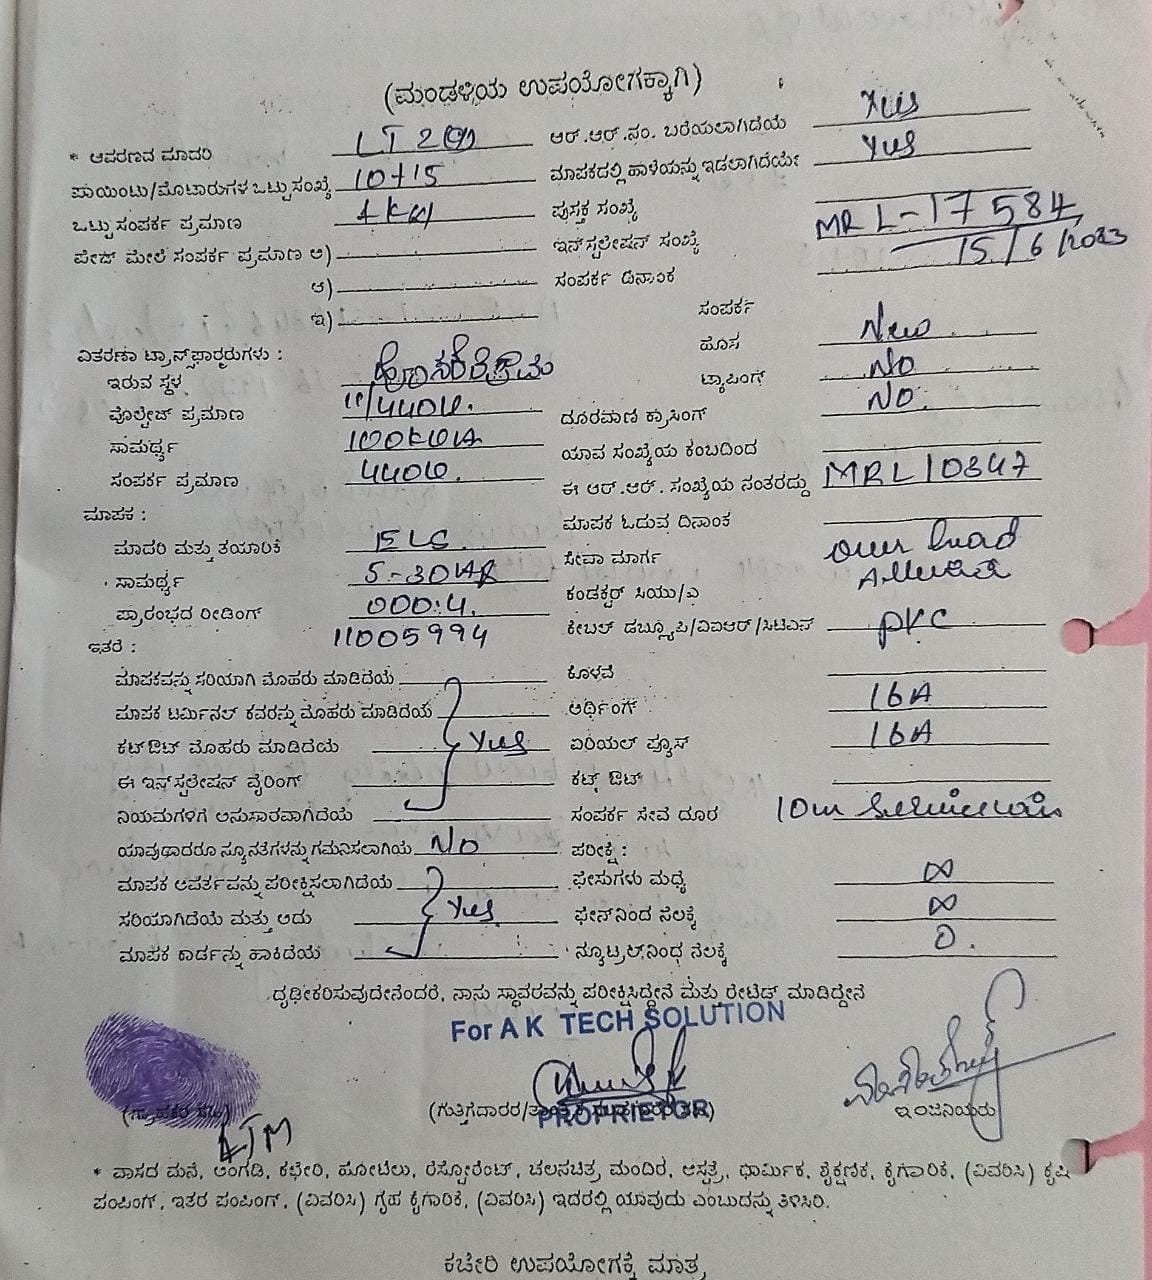 (ಮಂಡಳಿಯ ಉಪಯೋಗಕ್ಕಾಗಿ)
* ಆವರಣದ ಮಾದರಿ LT 2(a) ಆರ್.ಆರ್.ನಂ. ಬರೆಯಲಾಗಿದೆಯೆ Yes
ಪಾಯಿಂಟು/ಮೋಟಾರುಗಳ ಒಟ್ಟು ಸಂಖ್ಯೆ 10+15 ಮಾಪಕದಲ್ಲಿ ಹಾಳೆಯನ್ನು ಇಡಲಾಗಿದೆಯೇ Yes
ಒಟ್ಟು ಸಂಪರ್ಕ ಪ್ರಮಾಣ 1KW ಪುಸ್ತಕ ಸಂಖ್ಯೆ
ಪೇಜ್ ಮೇಲೆ ಸಂಪರ್ಕ ಪ್ರಮಾಣ ಅ) ಇನ್‌ಸ್ಟಲೇಷನ್ ಸಂಖ್ಯೆ MRL-17584
ಆ) ಸಂಪರ್ಕ ದಿನಾಂಕ 15/6/2023
ಇ) ಸಂಪರ್ಕ
ವಿತರಣಾ ಟ್ರಾನ್ಸ್‌ಫಾರ್ಮರುಗಳು : ಹೊಸ New
ಇರುವ ಸ್ಥಳ ಟ್ಯಾಪಿಂಗ್ NO
ವೊಲ್ಟೇಜ್ ಪ್ರಮಾಣ 11/440V. ದೂರವಾಣಿ ಕ್ರಾಸಿಂಗ್ NO.
ಸಾಮರ್ಥ್ಯ 100KVA ಯಾವ ಸಂಖ್ಯೆಯ ಕಂಬದಿಂದ
ಸಂಪರ್ಕ ಪ್ರಮಾಣ 440V. ಈ ಆರ್.ಆರ್. ಸಂಖ್ಯೆಯ ನಂತರದ್ದು MRL10347
ಮಾಪಕ : ಮಾಪಕ ಓದುವ ದಿನಾಂಕ
ಮಾದರಿ ಮತ್ತು ತಯಾರಿಕೆ ಸೇವಾ ಮಾರ್ಗ over head
ಸಾಮರ್ಥ್ಯ 5-30A ಕಂಡಕ್ಟರ್ ಸಿಯು/ಎ
ಪ್ರಾರಂಭದ ರೀಡಿಂಗ್ 000.4. ಕೇಬಲ್ ಡಬ್ಲ್ಯೂಪಿ/ವಿಐಆರ್/ಸಿಟಿಎಸ್ PVC
11005994
ಇತರೆ :
ಮಾಪಕವನ್ನು ಸರಿಯಾಗಿ ಮೊಹರು ಮಾಡಿದೆಯೆ ಕೊಳವೆ
ಮಾಪಕ ಟರ್ಮಿನಲ್ ಕವರನ್ನು ಮೊಹರು ಮಾಡಿದೆಯೆ ಅರ್ಥಿಂಗ್ 16A
ಕಟ್‌ಔಟ್ ಮೊಹರು ಮಾಡಿದೆಯೆ Yes ಏರಿಯಲ್ ಫ್ಯೂಸ್ 16A
ಈ ಇನ್‌ಸ್ಟಲೇಷನ್ ವೈರಿಂಗ್ ಕಟ್ಸ್ ಔಟ್
ನಿಯಮಗಳಿಗೆ ಅನುಸಾರವಾಗಿದೆಯೆ ಸಂಪರ್ಕ ಸೇವೆ ದೂರ 10m
ಯಾವುದಾದರೂ ನ್ಯೂನತೆಗಳನ್ನು ಗಮನಿಸಲಾಗಿಯೆ NO ಪರೀಕ್ಷೆ :
ಮಾಪಕ ಆವರ್ತವನ್ನು ಪರೀಕ್ಷಿಸಲಾಗಿದೆಯೆ ಫೇಸುಗಳು ಮಧ್ಯೆ ∞
ಸರಿಯಾಗಿದೆಯೆ ಮತ್ತು ಅದು Yes ಫೇಸ್‌ನಿಂದ ನೆಲಕ್ಕೆ ∞
ಮಾಪಕ ಕಾರ್ಡನ್ನು ಹಾಕಿದೆಯೆ ನ್ಯೂಟ್ರಲ್‌ನಿಂಧ ನೆಲಕ್ಕೆ 0.
ದೃಢೀಕರಿಸುವುದೇನೆಂದರೆ, ನಾನು ಸ್ಥಾವರವನ್ನು ಪರೀಕ್ಷಿಸಿದ್ದೇನೆ ಮತ್ತು ರೇಟೆಡ್ ಮಾಡಿದ್ದೇನೆ
For A K TECH SOLUTION
PROPRIETOR
ಇಂಜಿನಿಯರು
LTM
* ವಾಸದ ಮನೆ, ಅಂಗಡಿ, ಕಛೇರಿ, ಹೋಟೆಲು, ರೆಸ್ಟೋರೆಂಟ್, ಚಲನಚಿತ್ರ, ಮಂದಿರ, ಆಸ್ಪತ್ರೆ, ಧಾರ್ಮಿಕ, ಶೈಕ್ಷಣಿಕ, ಕೈಗಾರಿಕೆ, (ವಿವರಿಸಿ) ಕೃಷಿ
ಪಂಪಿಂಗ್, ಇತರ ಪಂಪಿಂಗ್, (ವಿವರಿಸಿ) ಗೃಹ ಕೈಗಾರಿಕೆ, (ವಿವರಿಸಿ) ಇದರಲ್ಲಿ ಯಾವುದು ಎಂಬುದನ್ನು ತಿಳಿಸಿರಿ.
ಕಚೇರಿ ಉಪಯೋಗಕ್ಕೆ ಮಾತ್ರ